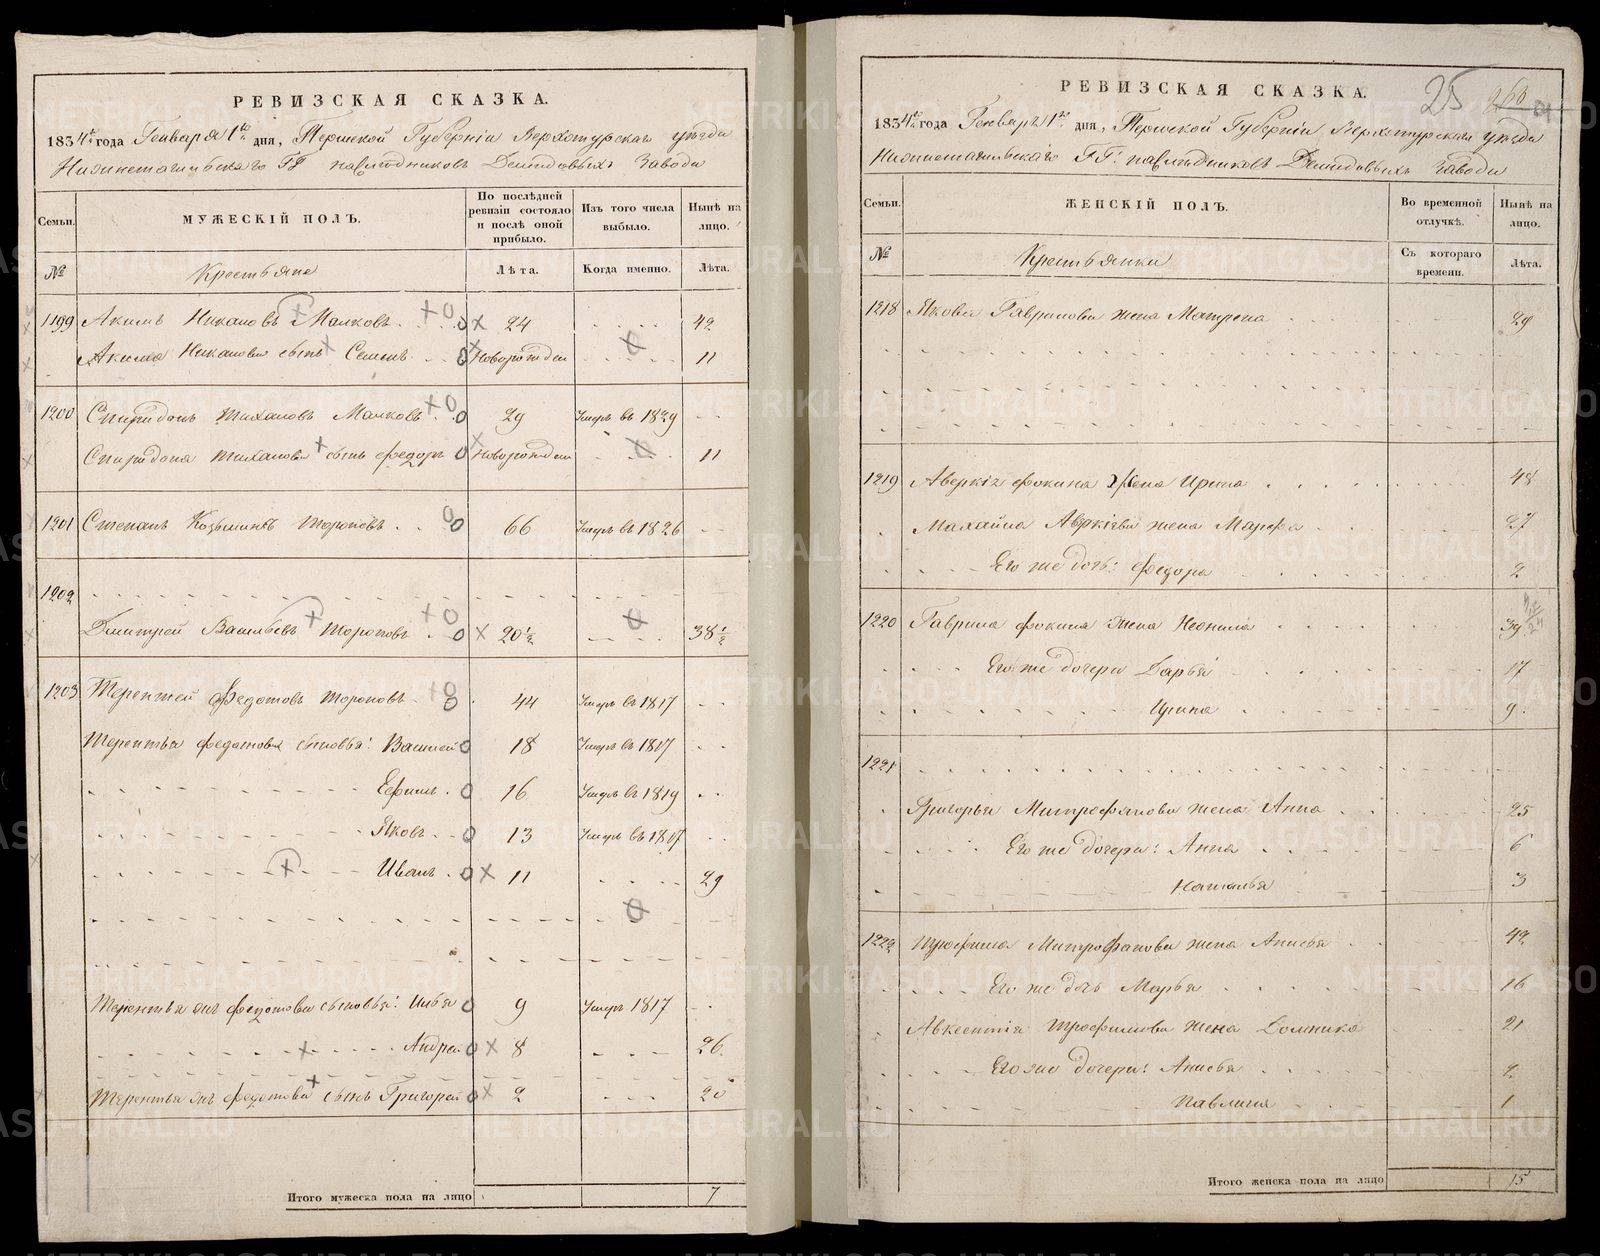 РЕВИЗСКАЯ СКАЗКА.
1834го года Генваря 1го дня, Пермской Губернiи Верхотурскаго уезда
Нижнетагильскаго ГГ наследниковъ Демидовыхъ Завода
Семьи.
МУЖЕСКIЙ ПОЛЪ.
По послѣдней ревизiи состояло и послѣ оной прибыло.
Изъ того числа выбыло.
Нынѣ на лицо.
№
Крестьяне
Лѣта.
Когда именно.
Лѣта.
1199 Акимъ Никаповъ Малковъ 24 42
Акима сынъ Семенъ Новорожден 11
1200 Спиридонъ Тихановъ Малковъ 29 Умеръ въ 1829
Спиридона Тиханова сынъ Федоръ Новорожден 11
1201 Степанъ Козьминъ Тороповъ 66 Умеръ въ 1826
1202
Дмитрей Васильевъ Тороповъ 20½ 38½
1203 Терентей Федотовъ Тороповъ 44 Умеръ въ 1817
Терентья Федотова сыновья: Василей 18 Умеръ въ 1817
Ефимъ 16 Умеръ въ 1819
Яковъ 13 Умеръ въ 1817
Иванъ 11 29
Терентья жъ Федотова сыновья: Илья 9 Умеръ 1817
Андрей 8 26
Терентья жъ Федотова сынъ Григорей 2 20
Итого мужеска пола на лицо 7
РЕВИЗСКАЯ СКАЗКА.
25
1834го года Генваря 1го дня, Пермской Губернiи Верхотурскаго уезда
Нижнетагильскаго ГГ. наследниковъ Демидовыхъ Завода
Семьи.
ЖЕНСКIЙ ПОЛЪ.
Во временной отлучкѣ.
Нынѣ на лицо.
№
Крестьянки
Съ котораго времени.
Лѣта.
1218 Якова Гаврилова жена Матрена 29
1219 Аверкiя Фокина Жена Ирина 48
Аверкiева жена Марфа 27
Его же дочь: Федора 2
1220 Гаврила Фокина жена Неонила 39
Его же дочери Дарья 17
Ирина 9
1221
Григорья Митрофанова жена Анна 25
Его же дочери: Анна 6
Наталья 3
1222 Трофима Митрофанова жена Анисья 42
Его же дочь Марья 16
Авксентiя Трофимова жена Домника 21
Его же дочери: Анисья 2
Павлина 1
Итого женска пола на лицо 15